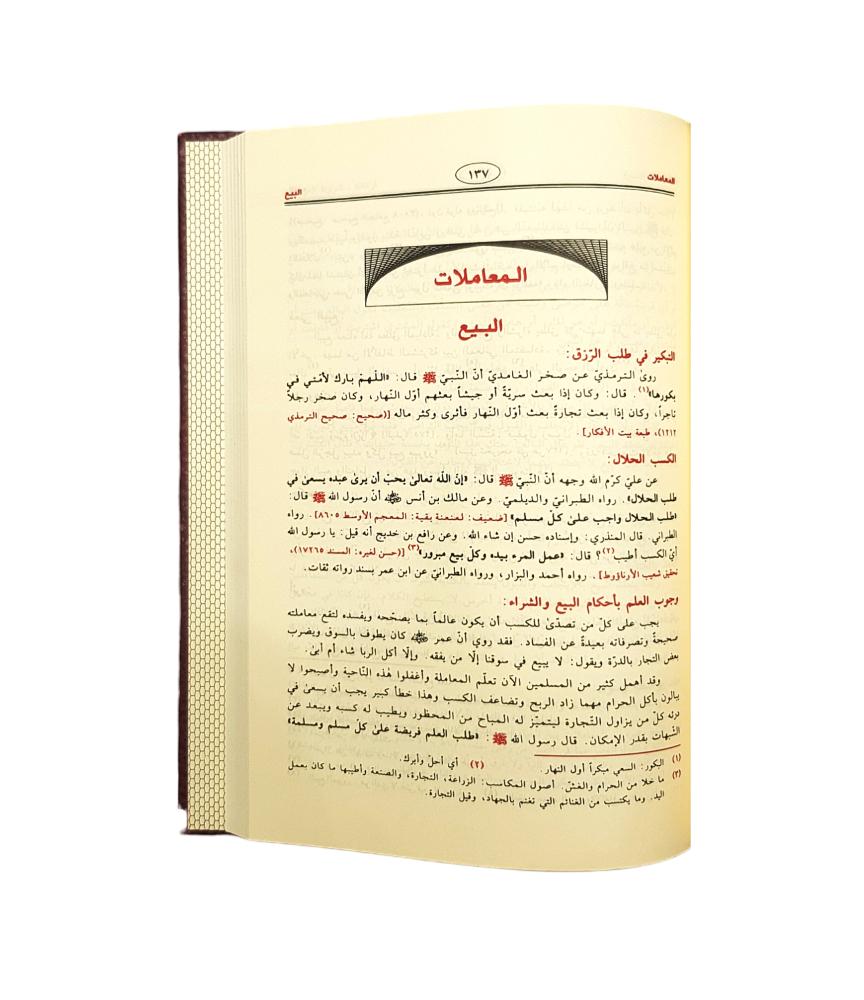 المعاملات
١٣٧
البيع
المعاملات
البيع
التبكير في طلب الرّزق:
روى الترمذيّ عن صخر الغامديّ أنّ النّبيّ ﷺ قال: «اللّهمّ بارك لأمّتي في
بكورها»(١). قال: وكان إذا بعث سريّةً أو جيشاً بعثهم أوّل النّهار، وكان صخر رجلاً
تاجراً، وكان إذا بعث تجارةً بعث أوّل النّهار فأثرى وكثر ماله [(صحيح: صحيح الترمذي
١٢١٢)، طبعة بيت الأفكار].
الكسب الحلال:
عن عليّ كرّم الله وجهه أنّ النّبيّ ﷺ قال: «إنّ الله تعالى يحبّ أن يرى عبده يسعى في
طلب الحلال». رواه الطبرانيّ والديلميّ. وعن مالك بن أنس رضي الله عنه أنّ رسول الله ﷺ قال:
«طلب الحلال واجب على كلّ مسلم» [ضعيف: لعنعنة بقية: المعجم الأوسط ٨٦٠٥]. رواه
الطبراني. قال المنذري: وإسناده حسن إن شاء الله. وعن رافع بن خديج أنه قيل: يا رسول الله
أيّ الكسب أطيب(٢)؟ قال: «عمل المرء بيده وكلّ بيع مبرور»(٣) [(حسن لغيره: المسند ١٧٢٦٥)،
تحقيق شعيب الأرناؤوط]. رواه أحمد والبزار، ورواه الطبرانيّ عن ابن عمر بسند رواته ثقات.
وجوب العلم بأحكام البيع والشراء:
يجب على كلّ من تصدّى للكسب أن يكون عالماً بما يصحّحه ويفسده لتقع معاملته
صحيحةً وتصرفاته بعيدةً عن الفساد. فقد روي أنّ عمر رضي الله عنه كان يطوف بالسوق ويضرب
بعض التجار بالدرّة ويقول: لا يبيع في سوقنا إلّا من يفقه. وإلّا أكل الربا شاء أم أبى.
وقد أهمل كثير من المسلمين الآن تعلّم المعاملة وأغفلوا هذه النّاحية وأصبحوا لا
يبالون بأكل الحرام مهما زاد الربح وتضاعف الكسب وهذا خطأ كبير يجب أن يسعى في
درئه كلّ من يزاول التّجارة ليتميّز له المباح من المحظور ويطيب له كسبه ويبعد عن
الشّبهات بقدر الإمكان. قال رسول الله ﷺ: «طلب العلم فريضة على كلّ مسلم ومسلمة»
(١) البكور: السعي مبكراً أول النهار. (٢) أي أحلّ وأبرك.
(٣) ما خلا من الحرام والغشّ. أصول المكاسب: الزراعة، التجارة، والصنعة وأطيبها ما كان بعمل
اليد. وما يكتسب من الغنائم التي تغنم بالجهاد، وقيل التجارة.